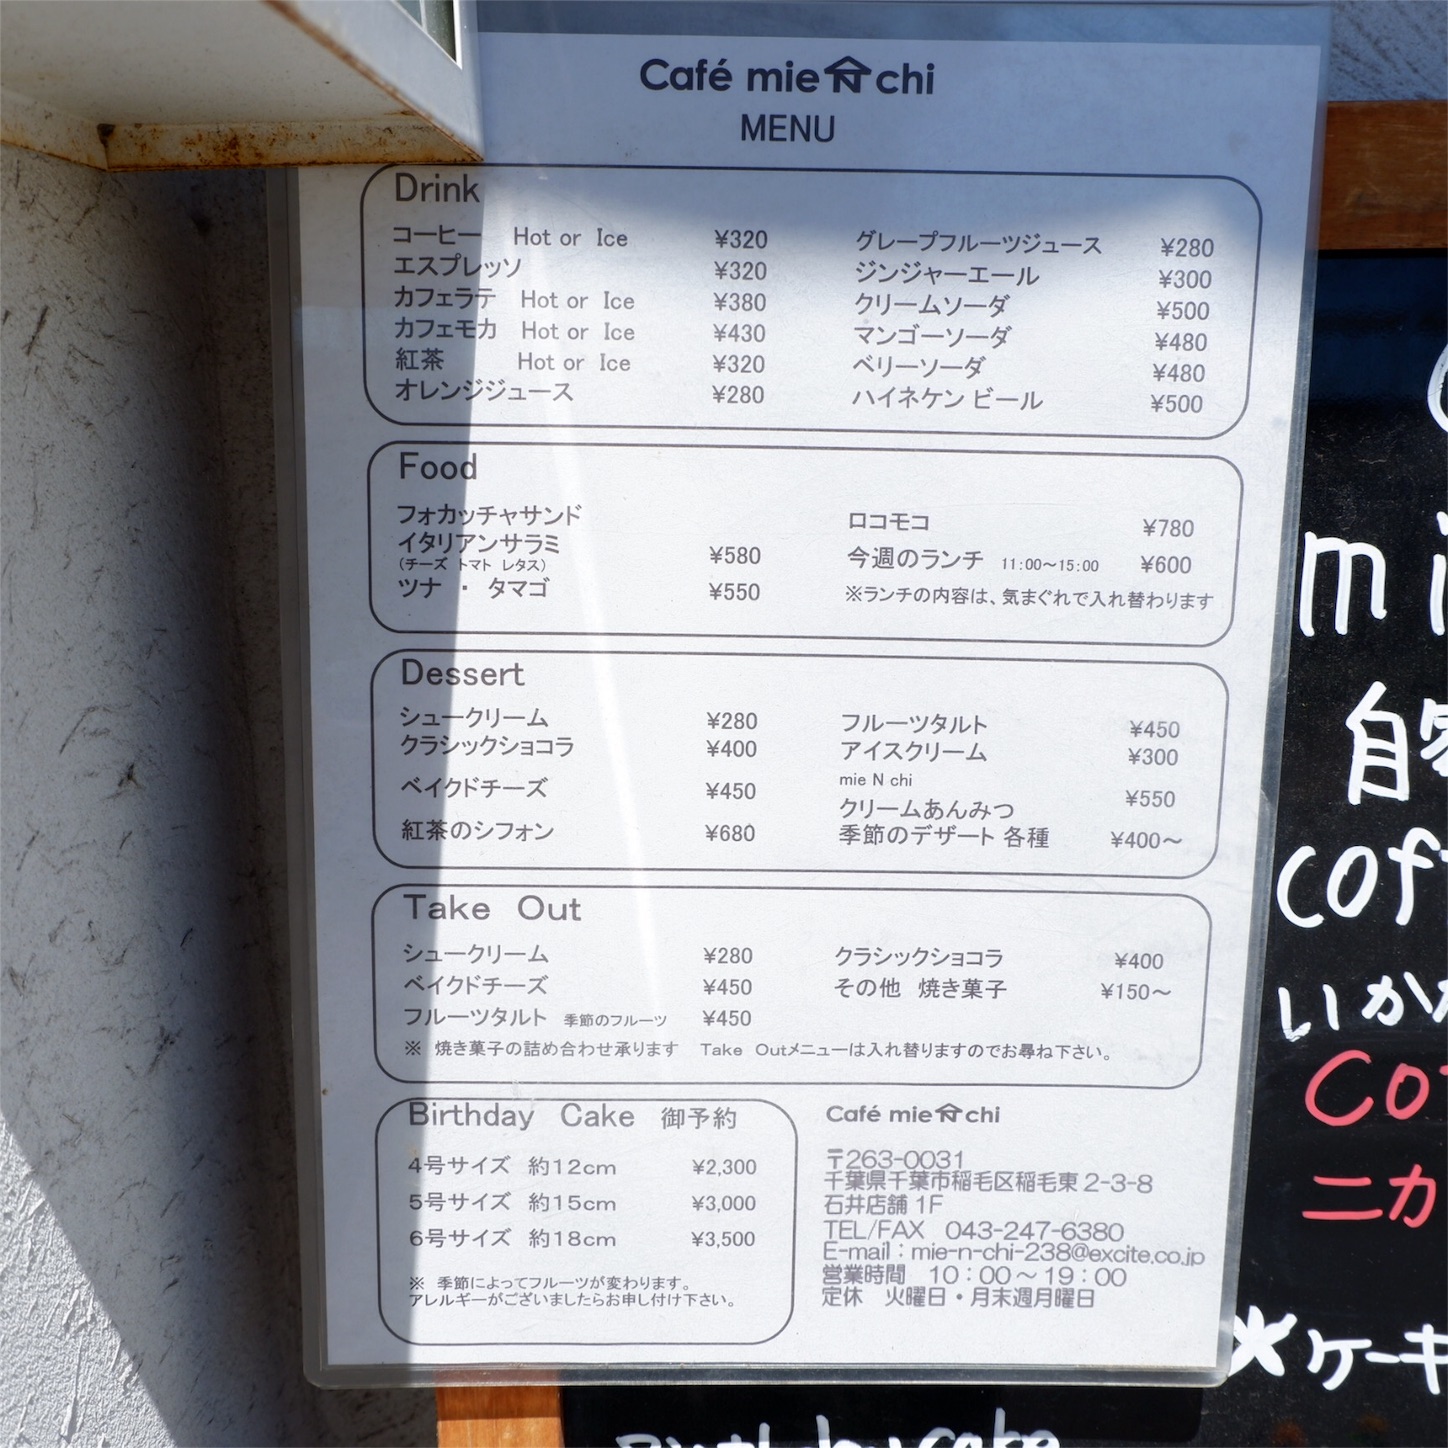 Café mie N chi
MENU
Drink
コーヒー Hot or Ice ¥320
エスプレッソ ¥320
カフェラテ Hot or Ice ¥380
カフェモカ Hot or Ice ¥430
紅茶 Hot or Ice ¥320
オレンジジュース ¥280
グレープフルーツジュース ¥280
ジンジャーエール ¥300
クリームソーダ ¥500
マンゴーソーダ ¥480
ベリーソーダ ¥480
ハイネケン ビール ¥500
Food
フォカッチャサンド
イタリアンサラミ ¥580
（チーズ トマト レタス）
ツナ ・ タマゴ ¥550
ロコモコ ¥780
今週のランチ 11:00～15:00 ¥600
※ランチの内容は、気まぐれで入れ替わります
Dessert
シュークリーム ¥280
クラシックショコラ ¥400
ベイクドチーズ ¥450
紅茶のシフォン ¥680
フルーツタルト ¥450
アイスクリーム ¥300
mie N chi
クリームあんみつ ¥550
季節のデザート 各種 ¥400～
Take Out
シュークリーム ¥280
ベイクドチーズ ¥450
フルーツタルト 季節のフルーツ ¥450
クラシックショコラ ¥400
その他 焼き菓子 ¥150～
※ 焼き菓子の詰め合わせ承ります Take Outメニューは入れ替りますのでお尋ね下さい。
Birthday Cake 御予約
4号サイズ 約12cm ¥2,300
5号サイズ 約15cm ¥3,000
6号サイズ 約18cm ¥3,500
※ 季節によってフルーツが変わります。
アレルギーがございましたらお申し付け下さい。
Café mie N chi
〒263-0031
千葉県千葉市稲毛区稲毛東2-3-8
石井店舗 1F
TEL/FAX 043-247-6380
E-mail：mie-n-chi-238@excite.co.jp
営業時間 10：00～19：00
定休 火曜日・月末週月曜日
mi
自家
cof
いかが
Co
ニカ
※ケーキ
Birthday cake